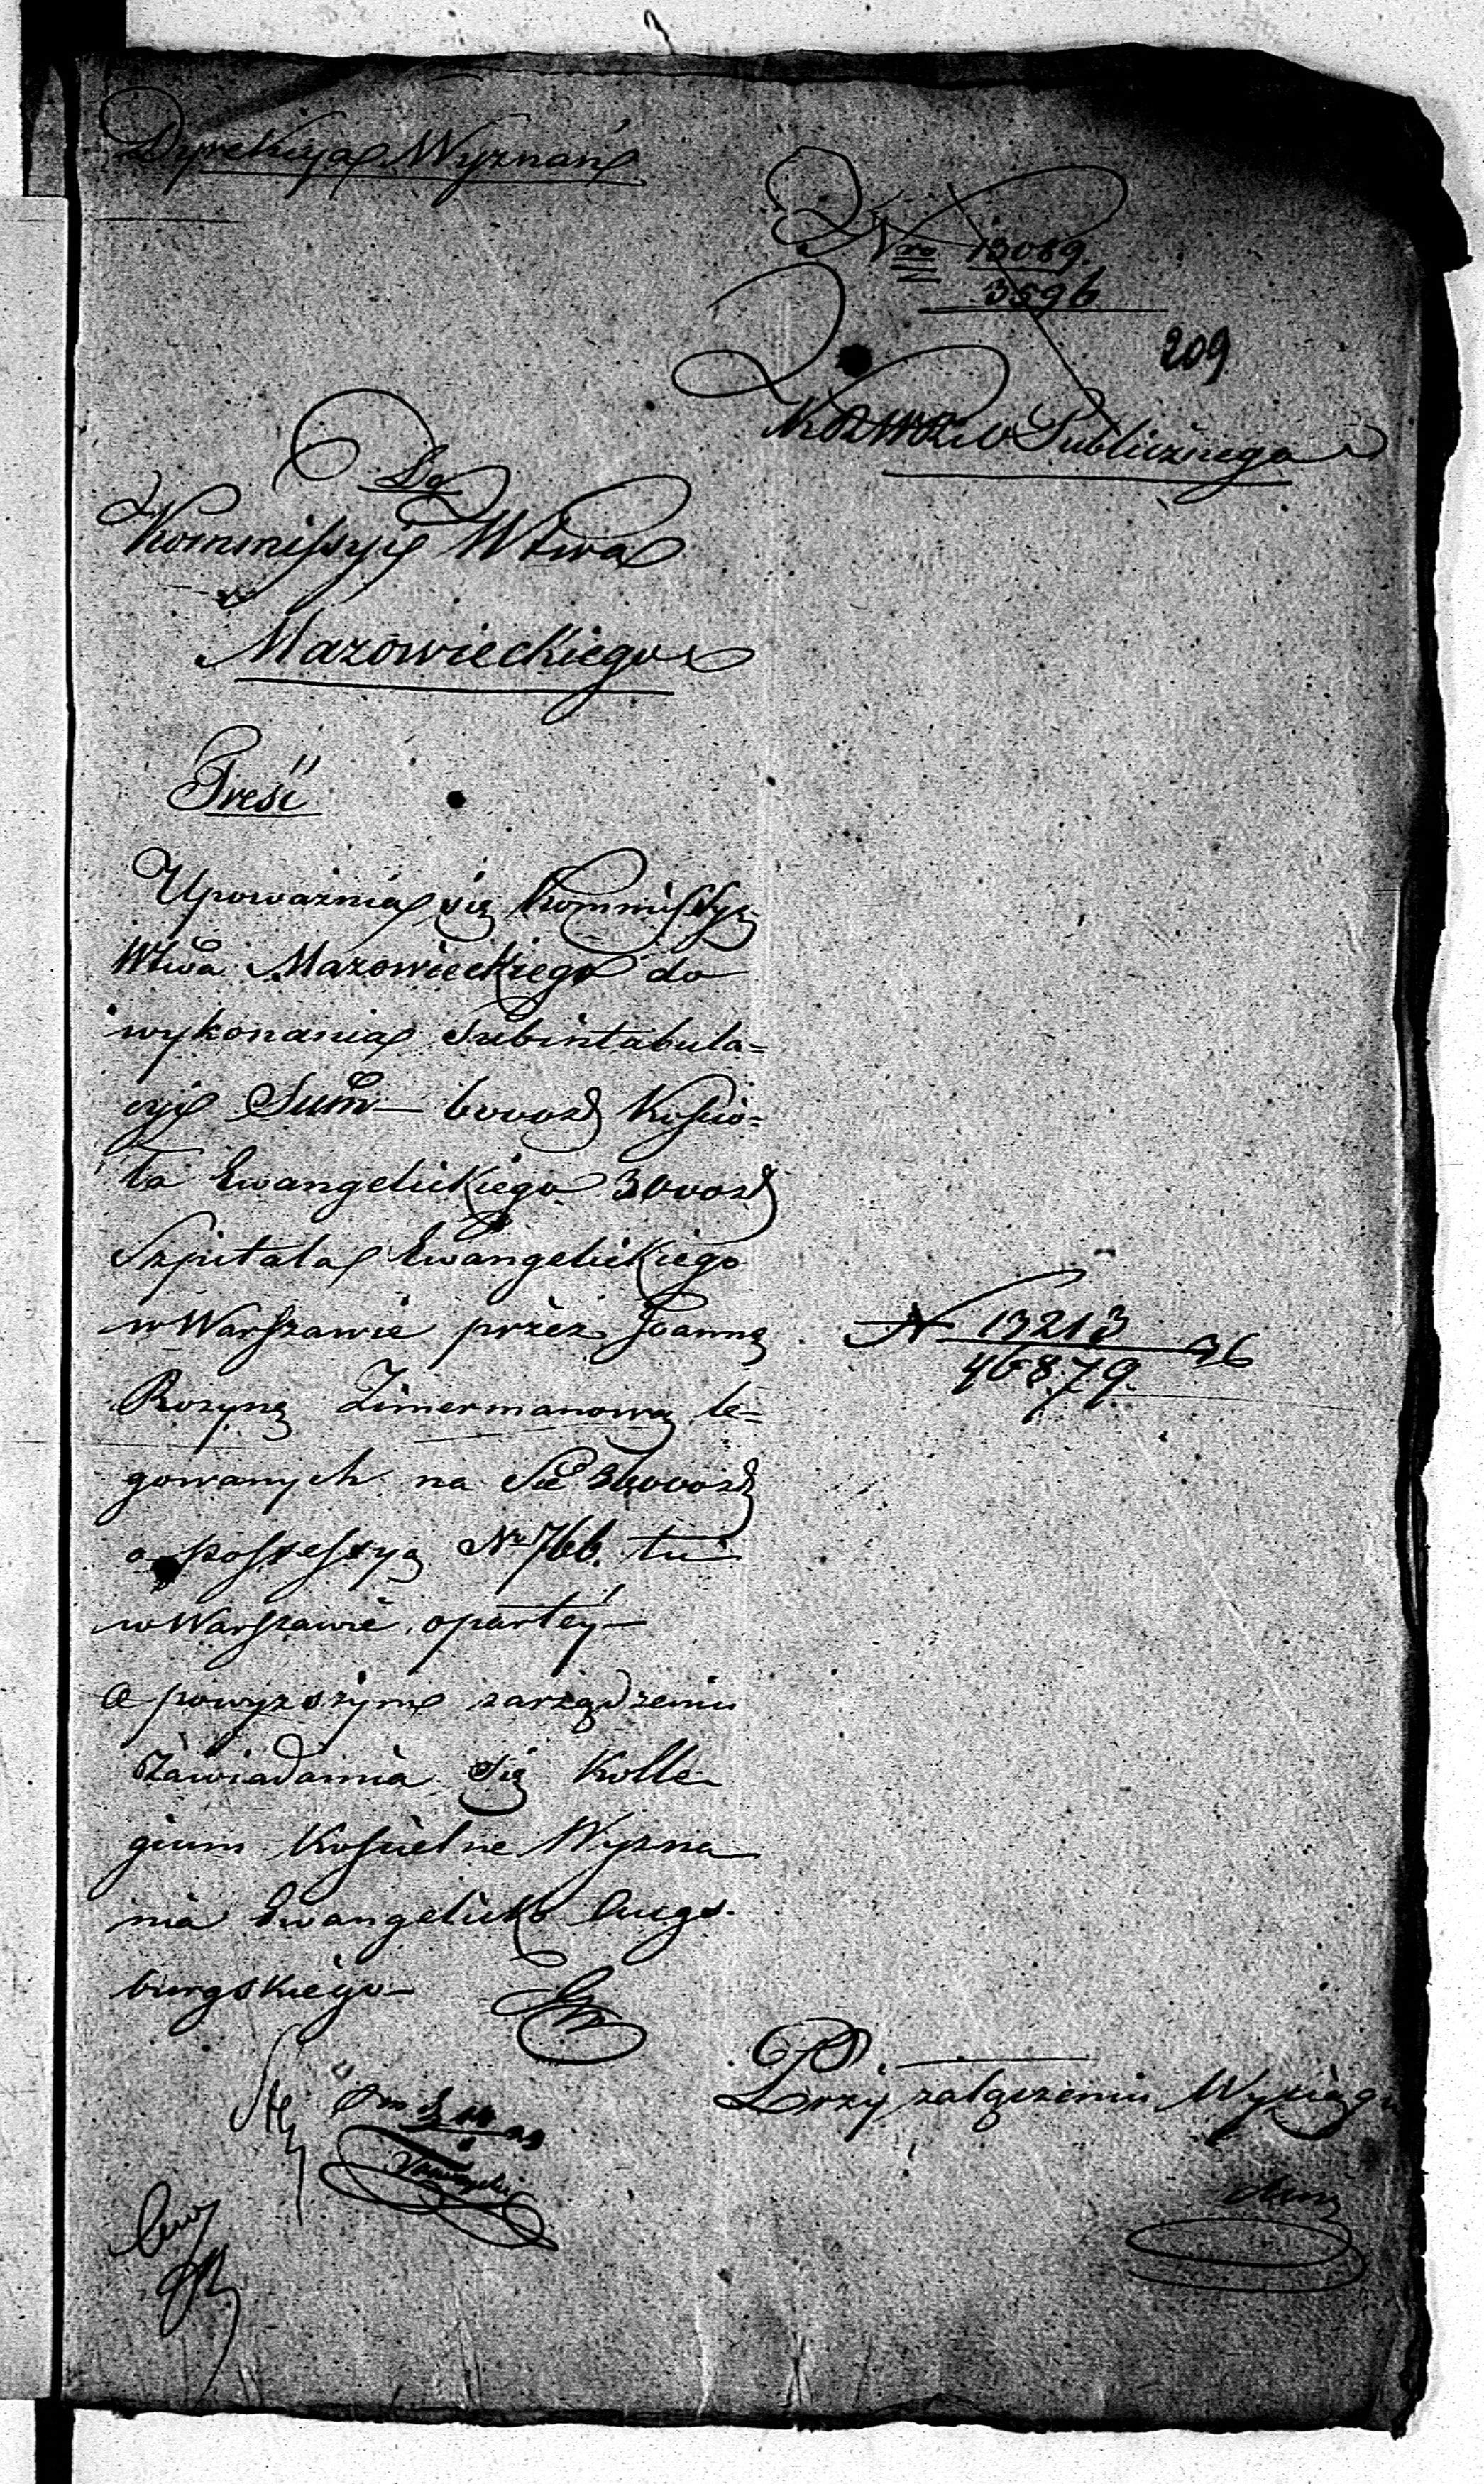 Dyrekcya Wyznań
Nro 13089.
3596
209
Publicznego
Do
Kommissyi Wtwa
Mazowieckiego
Treść
Upoważnia się Kommissyę
Wtwa Mazowieckiego do
wykonania Subintabula=
cyi Sum̄ 6000 zł Kościo=
ła Ewangelickiego 3000 zł
Szpitala Ewangelickiego
w Warszawie przez Joannę
Rozynę Zimermanową le=
gowanych na Sie 36000 zł
o possessyą Nro 766. tu
w Warszawie opartéy
O powyższym zarządzeniu
Zawiadamia się Kolle
gium Kościelne Wyzna
nia Ewangelicko Augs.
burgskiego
N 13213 36
46879.
Przy załączeniu Wyciągu